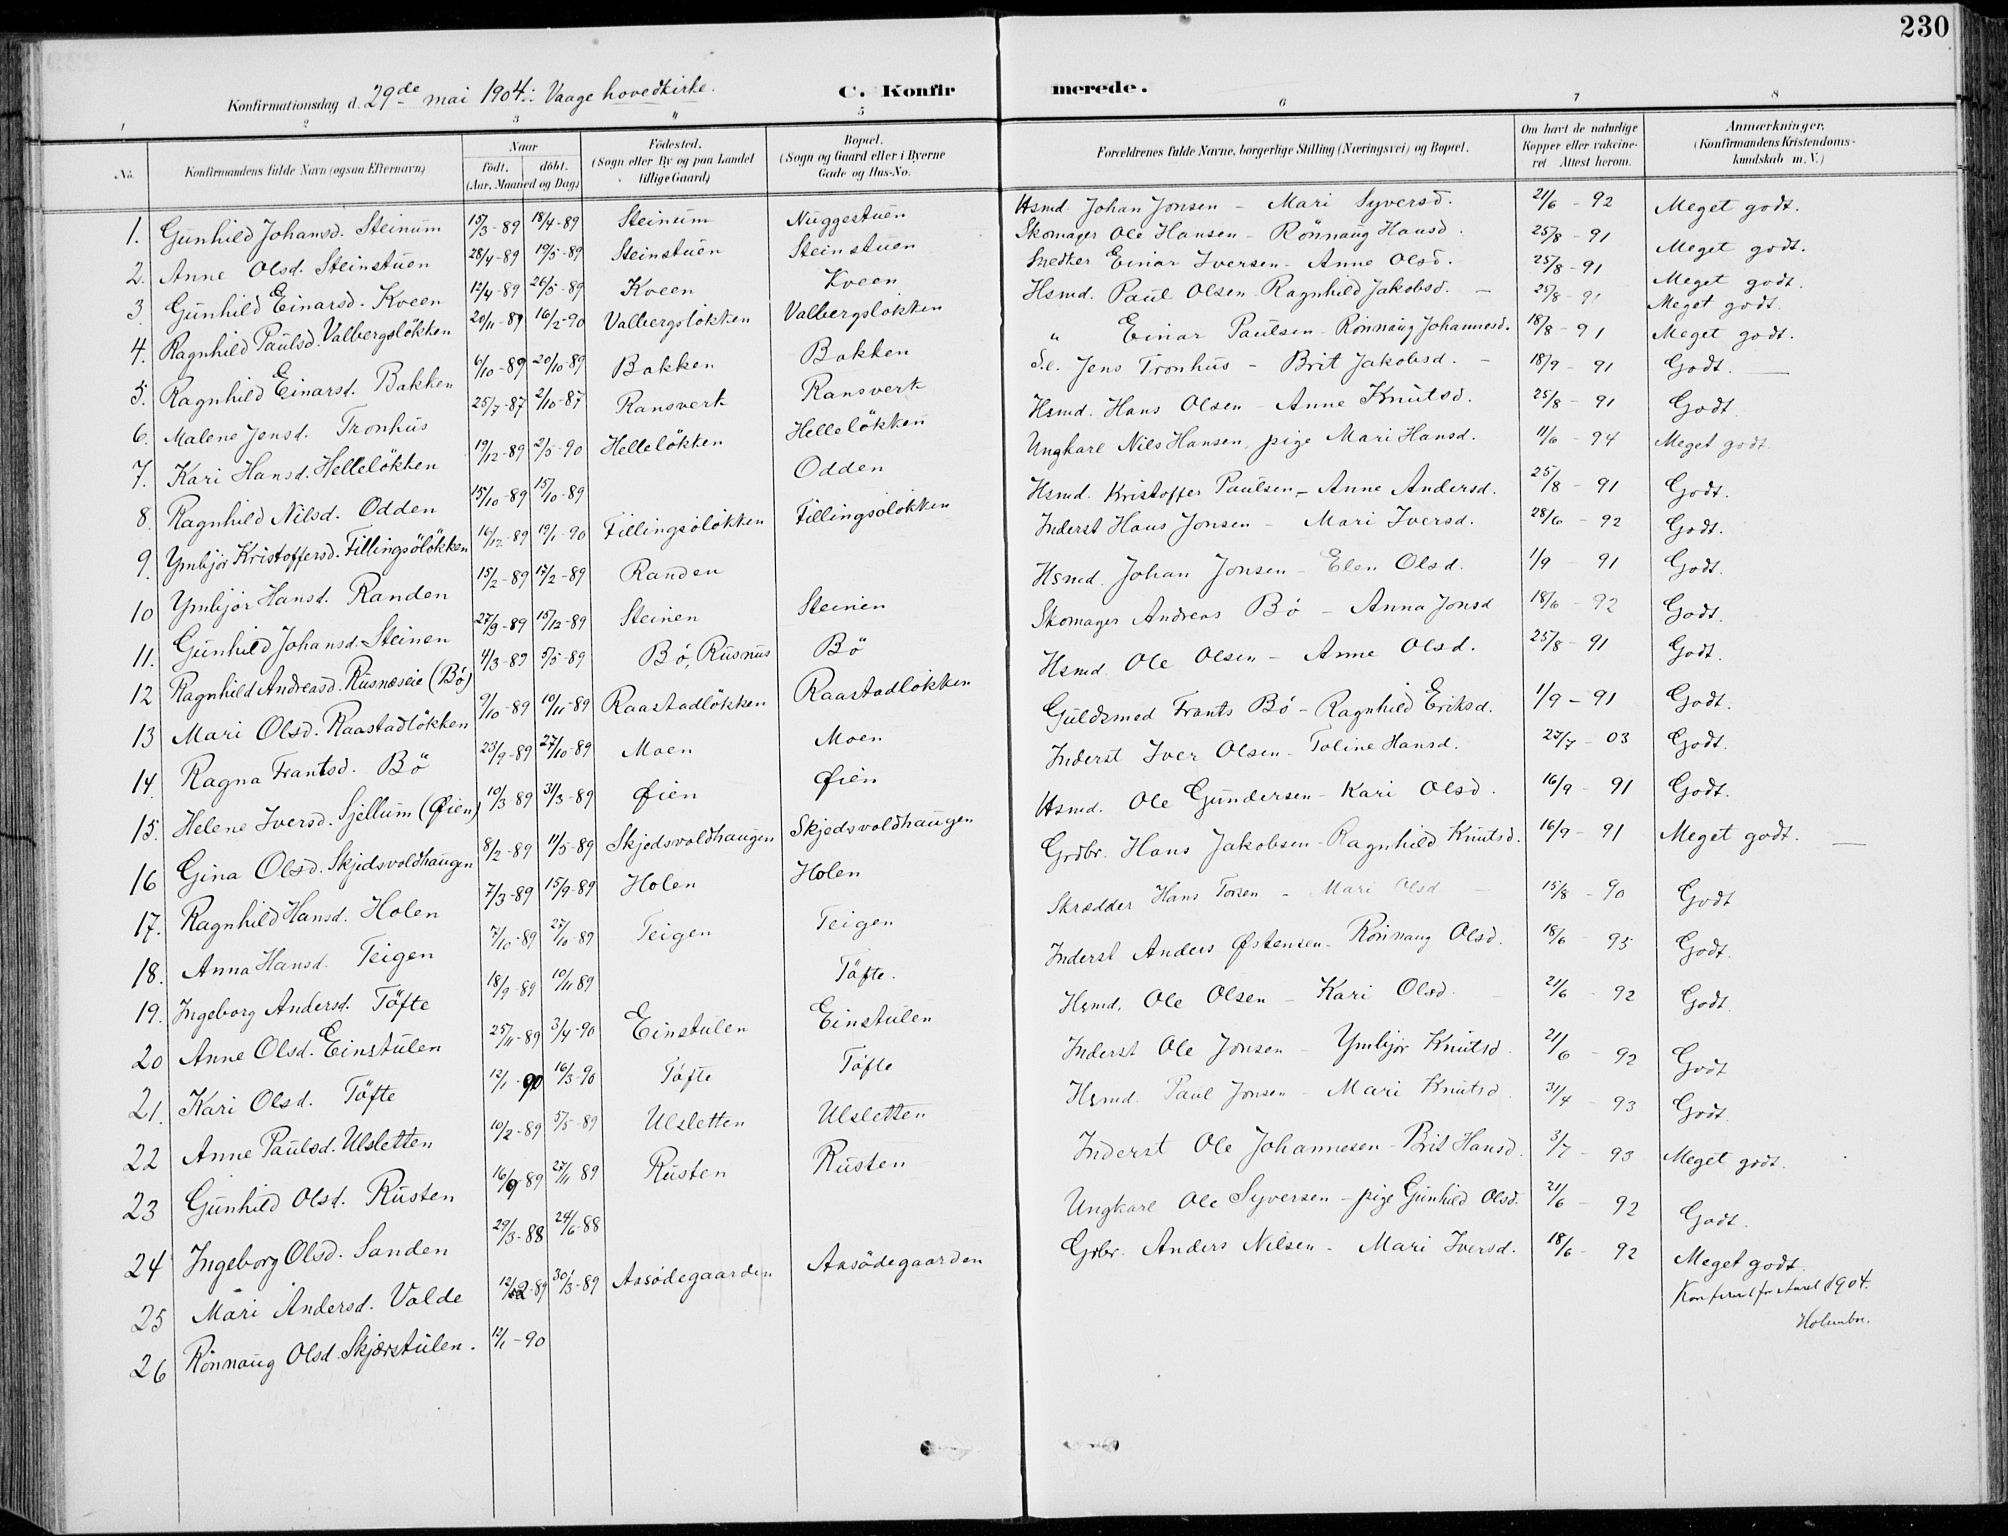 230
Konfirmationsdag d. 29de mai 1904: Vaage hovedkirke.
C. Konfirmerede.
1 2 3 4 5 6 7 8
No.
Konfirmandens fulde Navn (ogsaa Efternavn)
Naar født. døbt. (Aar, Maaned og Dag)
Fødested. (Sogn eller By og paa Landet tillige Gaard)
Bopæl. (Sogn og Gaard eller i Byerne Gade og Hus-No.
Forældrenes fulde Navne, borgerlige Stilling (Næringsvei) og Bopæl.
Om havt de naturlige Kopper eller vakcineret. Attest herom.
Anmærkninger. (Konfirmandens Kristendomskundskab m. V.)
1. Gunhild Johansd. Steinum 15/3-89 18/4-89 Steinum Nuggestuen Hsmd. Johan Jonsen - Mari Syversd. 21/6 - 92 Meget godt.
2. Anne Olsd. Steinstuen 28/4-89 19/5-89 Steinstuen Steinstuen Skomager Ole Hansen - Rönnaug Hansd. 25/8 - 91 Meget godt.
3 Gunhild Einarsd. Kveen 12/4-89 26/5-89 Kveen Kveen Snedker Einar Iversen - Anne Olsd. 25/8 - 91 Meget godt.
4. Ragnhild Paulsd. Valbergslökken 20/11-89 16/2-90 Valbergslökken Valbergslökken Hsmd. Paul Olsen - Ragnhild Jakobsd. - 25/8 - 91 Meget godt.
5. Ragnhild Einarsd. Bakken 6/10-89 20/10-89 Bakken Bakken " Einar Paulsen - Rönnaug Johannesd. 18/8 - 91 Meget godt.
6. Malene Jensd. Tronhus 25/7-87 2/10-87 Ransverk Ransverk S.e. Jens Tronhus - Brit Jakobsd. - 18/9 - 91 Godt.
7. Kari Hansd. Hellelökken 19/12-89 2/5-90 Hellelökken Hellelökken Hsmd. Hans Olsen - Anne Knutsd. 25/8 - 91 Godt.
8. Ragnhild Nilsd. Odden 15/10-89 15/10-89 Odden Ungkarl Nils Hansen, pige Mari Hansd. 11/6 - 94 Meget godt.
9. Ymbjör Kristoffersd. Tillingsölökken 16/12-89 19/1-90 Tillingsölökken Tillingsölökken Hsmd. Kristoffer Paulsen - Anne Andersd. 25/8 - 91 Godt.
10 Ymbjör Hansd. Randen 15/2-89 17/2-89 Randen Inderst Hans Jonsen - Mari Iversd. 28/6 - 92 Godt.
11. Gunhild Johansd. Steinen 27/9-89 15/12-89 Steinen Steinen Hsmd. Johan Jonsen - Elen Olsd. 1/9 - 91 Godt.
12 Ragnhild Andreasd. Rusnæseie (Bö) 4/3-89 5/5-89 Bö, Rusnus Bö Skomager Andreas Bö - Anna Jonsd 18/6 - 92 Godt.
13 Mari Olsd. Raastadlökken 9/10-89 10/11-89 Raastadlökken Raastadlökken Hsmd. Ole Olsen - Anne Olsd. 25/8 - 91 Godt.
14. Ragna Frantsd. Bö 23/9-89 27/10-89 Moen Moen Guldsmed Frants Bö - Ragnhild Eriksd. 1/9 - 91 Godt.
15. Helene Iversd. Sjellum (Øien) 10/3-89 31/3-89 Øien Øien Inderst Iver Olsen - Toline Hansd. 27/7 - 03 Godt.
16 Gina Olsd. Skjedsvoldhaugen 8/2-89 11/5-89 Skjedsvoldhaugen Skjedsvoldhaugen Hsmd. Ole Gundersen - Kari Olsd. 16/9 - 91 Godt.
17. Ragnhild Hansd. Holen 7/3-89 15/9-89 Holen Holen Grdbr. Hans Jakobsen - Ragnhild Knutsd. 16/9 - 91 Meget godt.
18. Anna Hansd. Teigen 7/10-89 27/10-89 Teigen Teigen Skrædder Hans Tosen - Mari Olsd - 15/8 - 90 Godt
19. Ingeborg Andersd. Töfte 18/9-89 10/11 89 Töfte. Inderst Anders Østensen - Rönnaug Olsd. 18/6 - 95 Godt.
20 Anne Olsd. Einstulen 25/11-89 3/4-90 Einstulen Einstulen Hsmd. Ole Olsen - Kari Olsd. - 21/6 - 92 Godt.
21. Kari Olsd. Töfte 12/1-90 16/3-90 Töfte Töfte Inderst Ole Jonsen - Ymbjör Knutsd. 21/6 - 92 Godt
22 Anne Paulsd. Ulsletten 10/2-89 5/5-89 Ulsletten Ulsletten Hsmd. Paul Jonsen - Mari Knutsd. 31/4 - 93 Godt.
23 Gunhild Olsd. Rusten 16/9-89 27/11 89 Rusten Rusten Inderst Ole Johannesen - Brit Hansd. 3/7 - 93 Meget godt.
24 Ingeborg Olsd. Sanden 29/3-88 24/6-88 Ungkarl Ole Syversen - pige Gunhild Olsd. 21/6 - 92 Godt.
25 Mari Andersd. Valde 12/2-89 30/3-89 Aasödegaarden Aasödegaarden Grdbr. Anders Nilsen - Mari Iversd. 18/6 - 92 Meget godt.
26 Rönnaug Olsd. Skjærstulen. 12/1-90
1904.